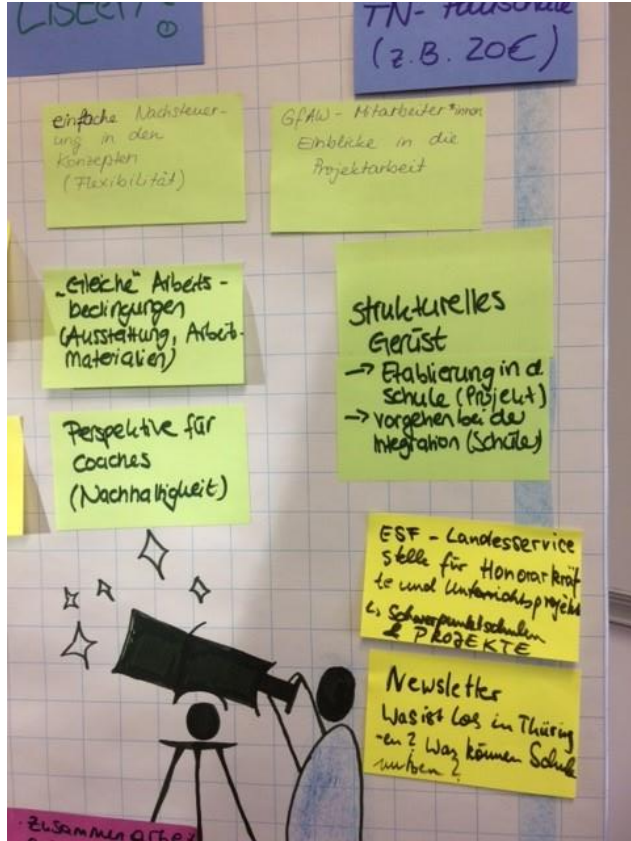 Listen!
TN- Pauschale
(z.B. 20€)
einfache Nachsteuer-
ung in den
Konzepten
(Flexibilität)
GFAW- Mitarbeiter*innen
Einblicke in die
Projektarbeit
„Gleiche" Arbeits-
bedingungen
(Ausstattung, Arbeits-
materialien)
Strukturelles
Gerüst
→ Etablierung in d.
Schule (Projekt)
→ Vorgehen bei der
Integration (Schüler)
Perspektive für
Coaches
(Nachhaltigkeit)
ESF - Landesservice
stelle für Honorarkräf
te und Unterrichtsprojekte
↳ Schwerpunktschulen
& PROJEKTE
Newsletter
Was ist los in Thüring
-en? Was können Schule
nutzen?
Zusammenarbeit